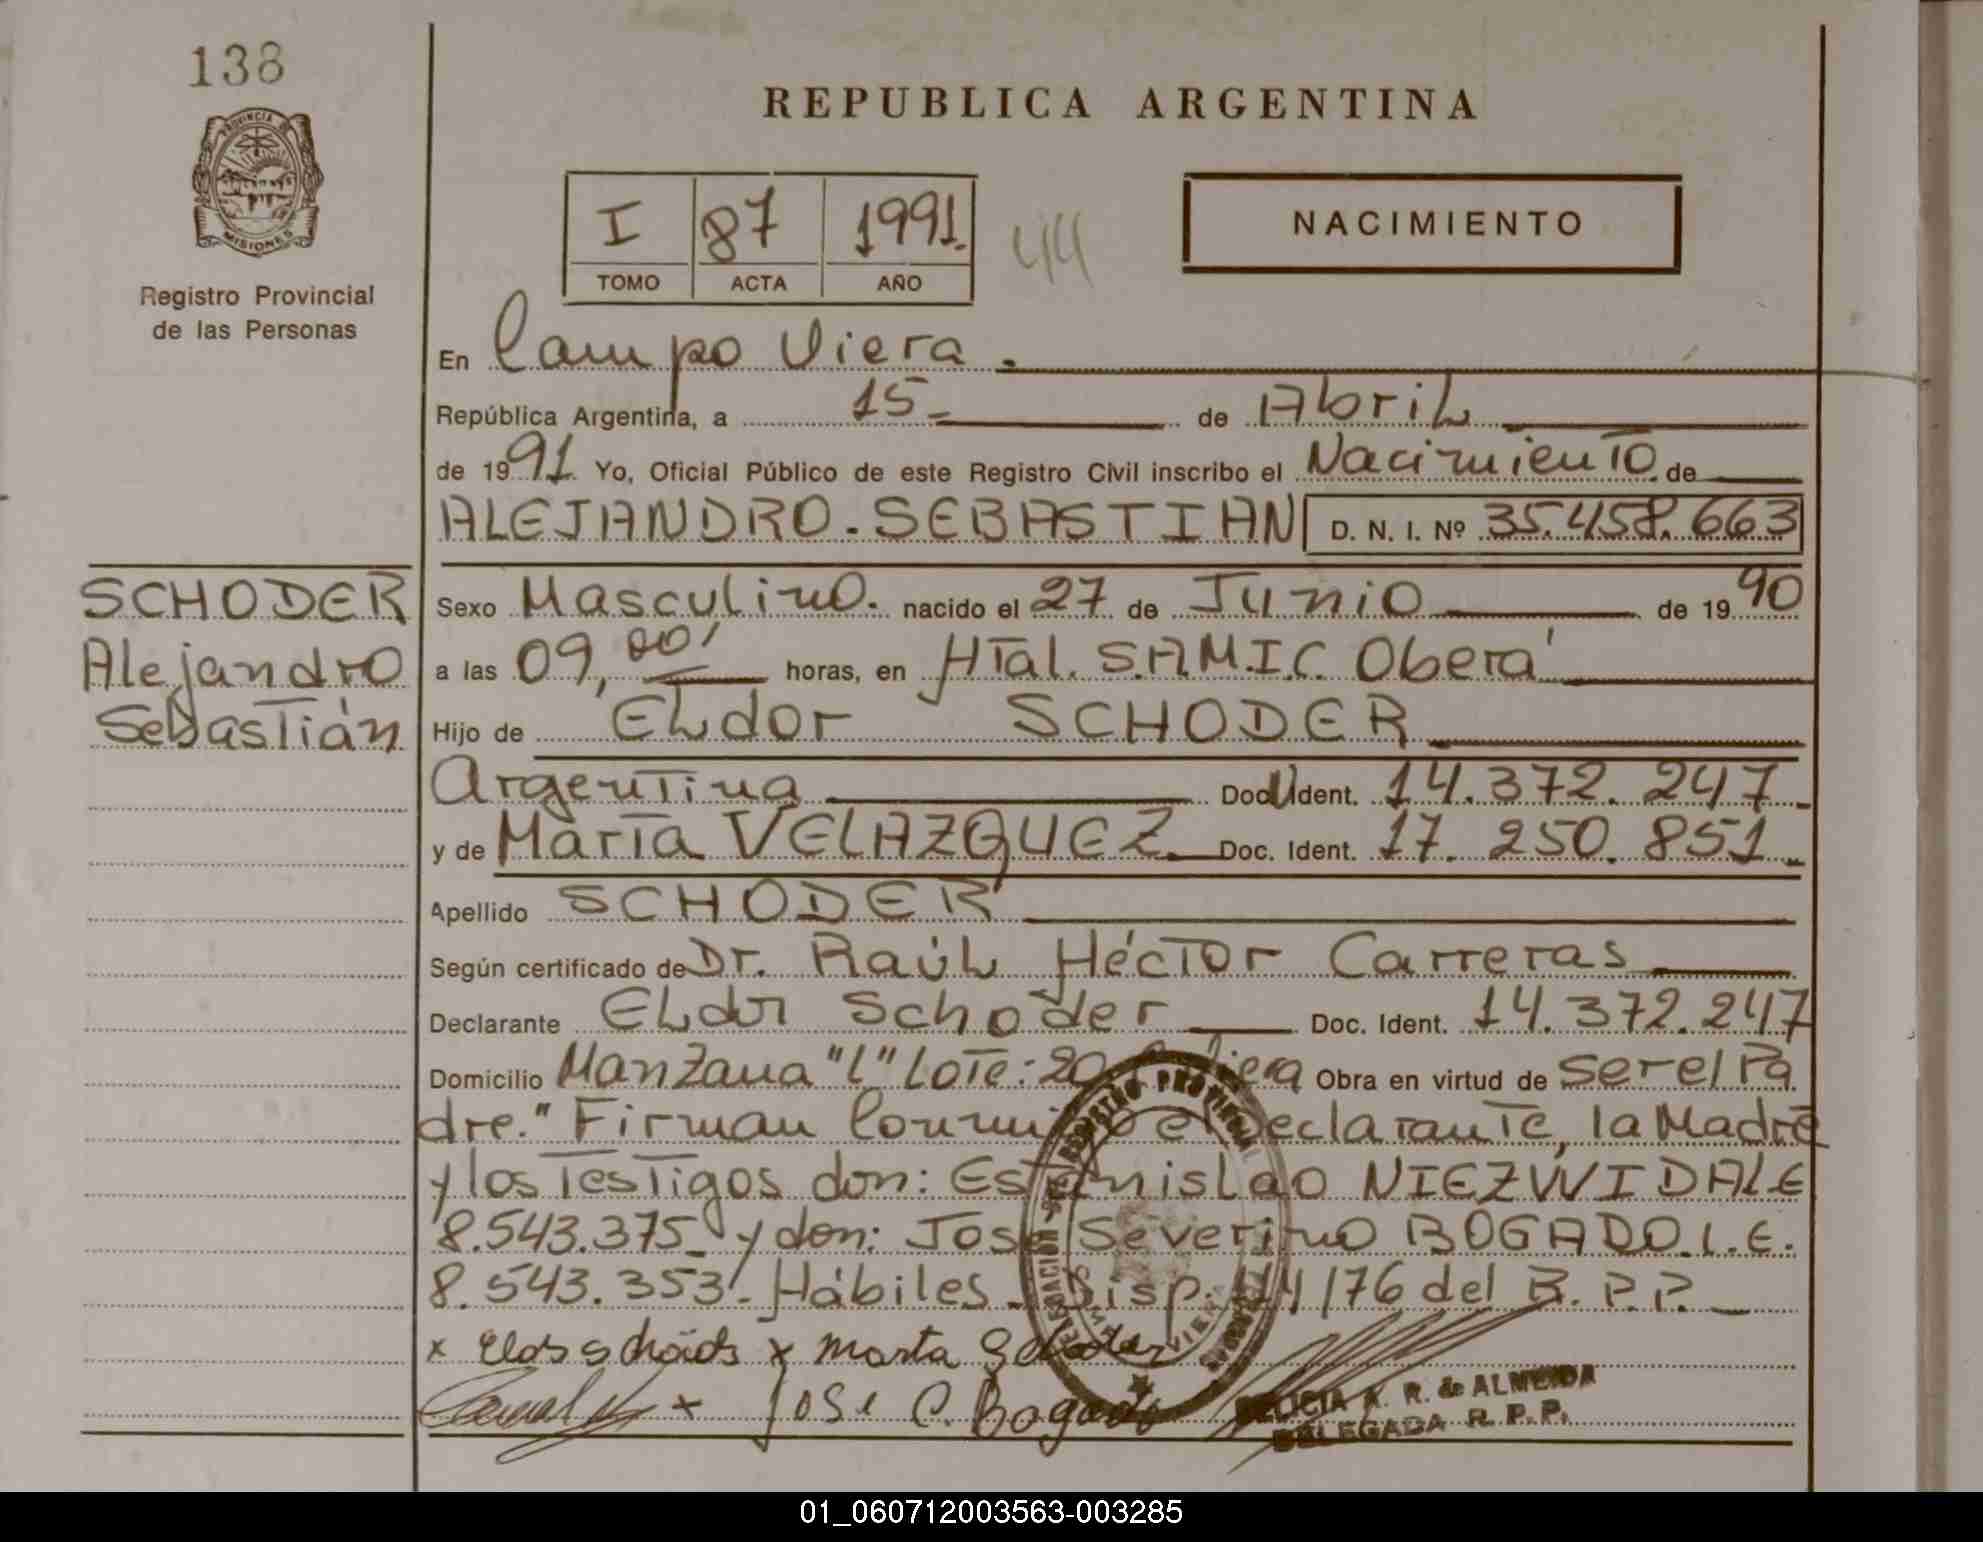 138
REPUBLICA ARGENTINA
PROVINCIA DE
MISIONES
Registro Provincial
de las Personas
I 87 1991.
TOMO ACTA AÑO
44
NACIMIENTO
En Campo Viera.
República Argentina, a 15 de Abril
de 1991. Yo, Oficial Público de este Registro Civil inscribo el Nacimiento de
ALEJANDRO. SEBASTIAN D. N. I. Nº 35.458.663
SCHODER
Alejandro
Sebastián
Sexo Masculino. nacido el 27 de Junio de 1990
a las 09,00' horas, en HTal. S.A.M.I.C. Oberá
Hijo de Eldor SCHODER
Argentina Doc. Ident. 14.372.247.
y de Marta VELAZQUEZ. Doc. Ident. 17.250.851.
Apellido SCHODER
Según certificado de Dr. Raúl Héctor Carreras
Declarante Eldor Schoder Doc. Ident. 14.372.247
Domicilio Manzana "L" Lote: 20 Viera Obra en virtud de ser el Pa
dre." Firman Conmigo el Declarante, la Madre
y los Testigos don: Estanislao NIEZWIDA L.E
8.543.375 y don: José Severino BOGADO. L.E.
8.543.353. Hábiles. Disp. 44/76 del R.P.P.
x x Marta Schoder
x José C. Bogado
REGISTRO PROVINCIAL
DELEGACION
VIERA
MISIONES
A. R. de ALMEIDA
DELEGADA R. P. P.
01_060712003563-003285